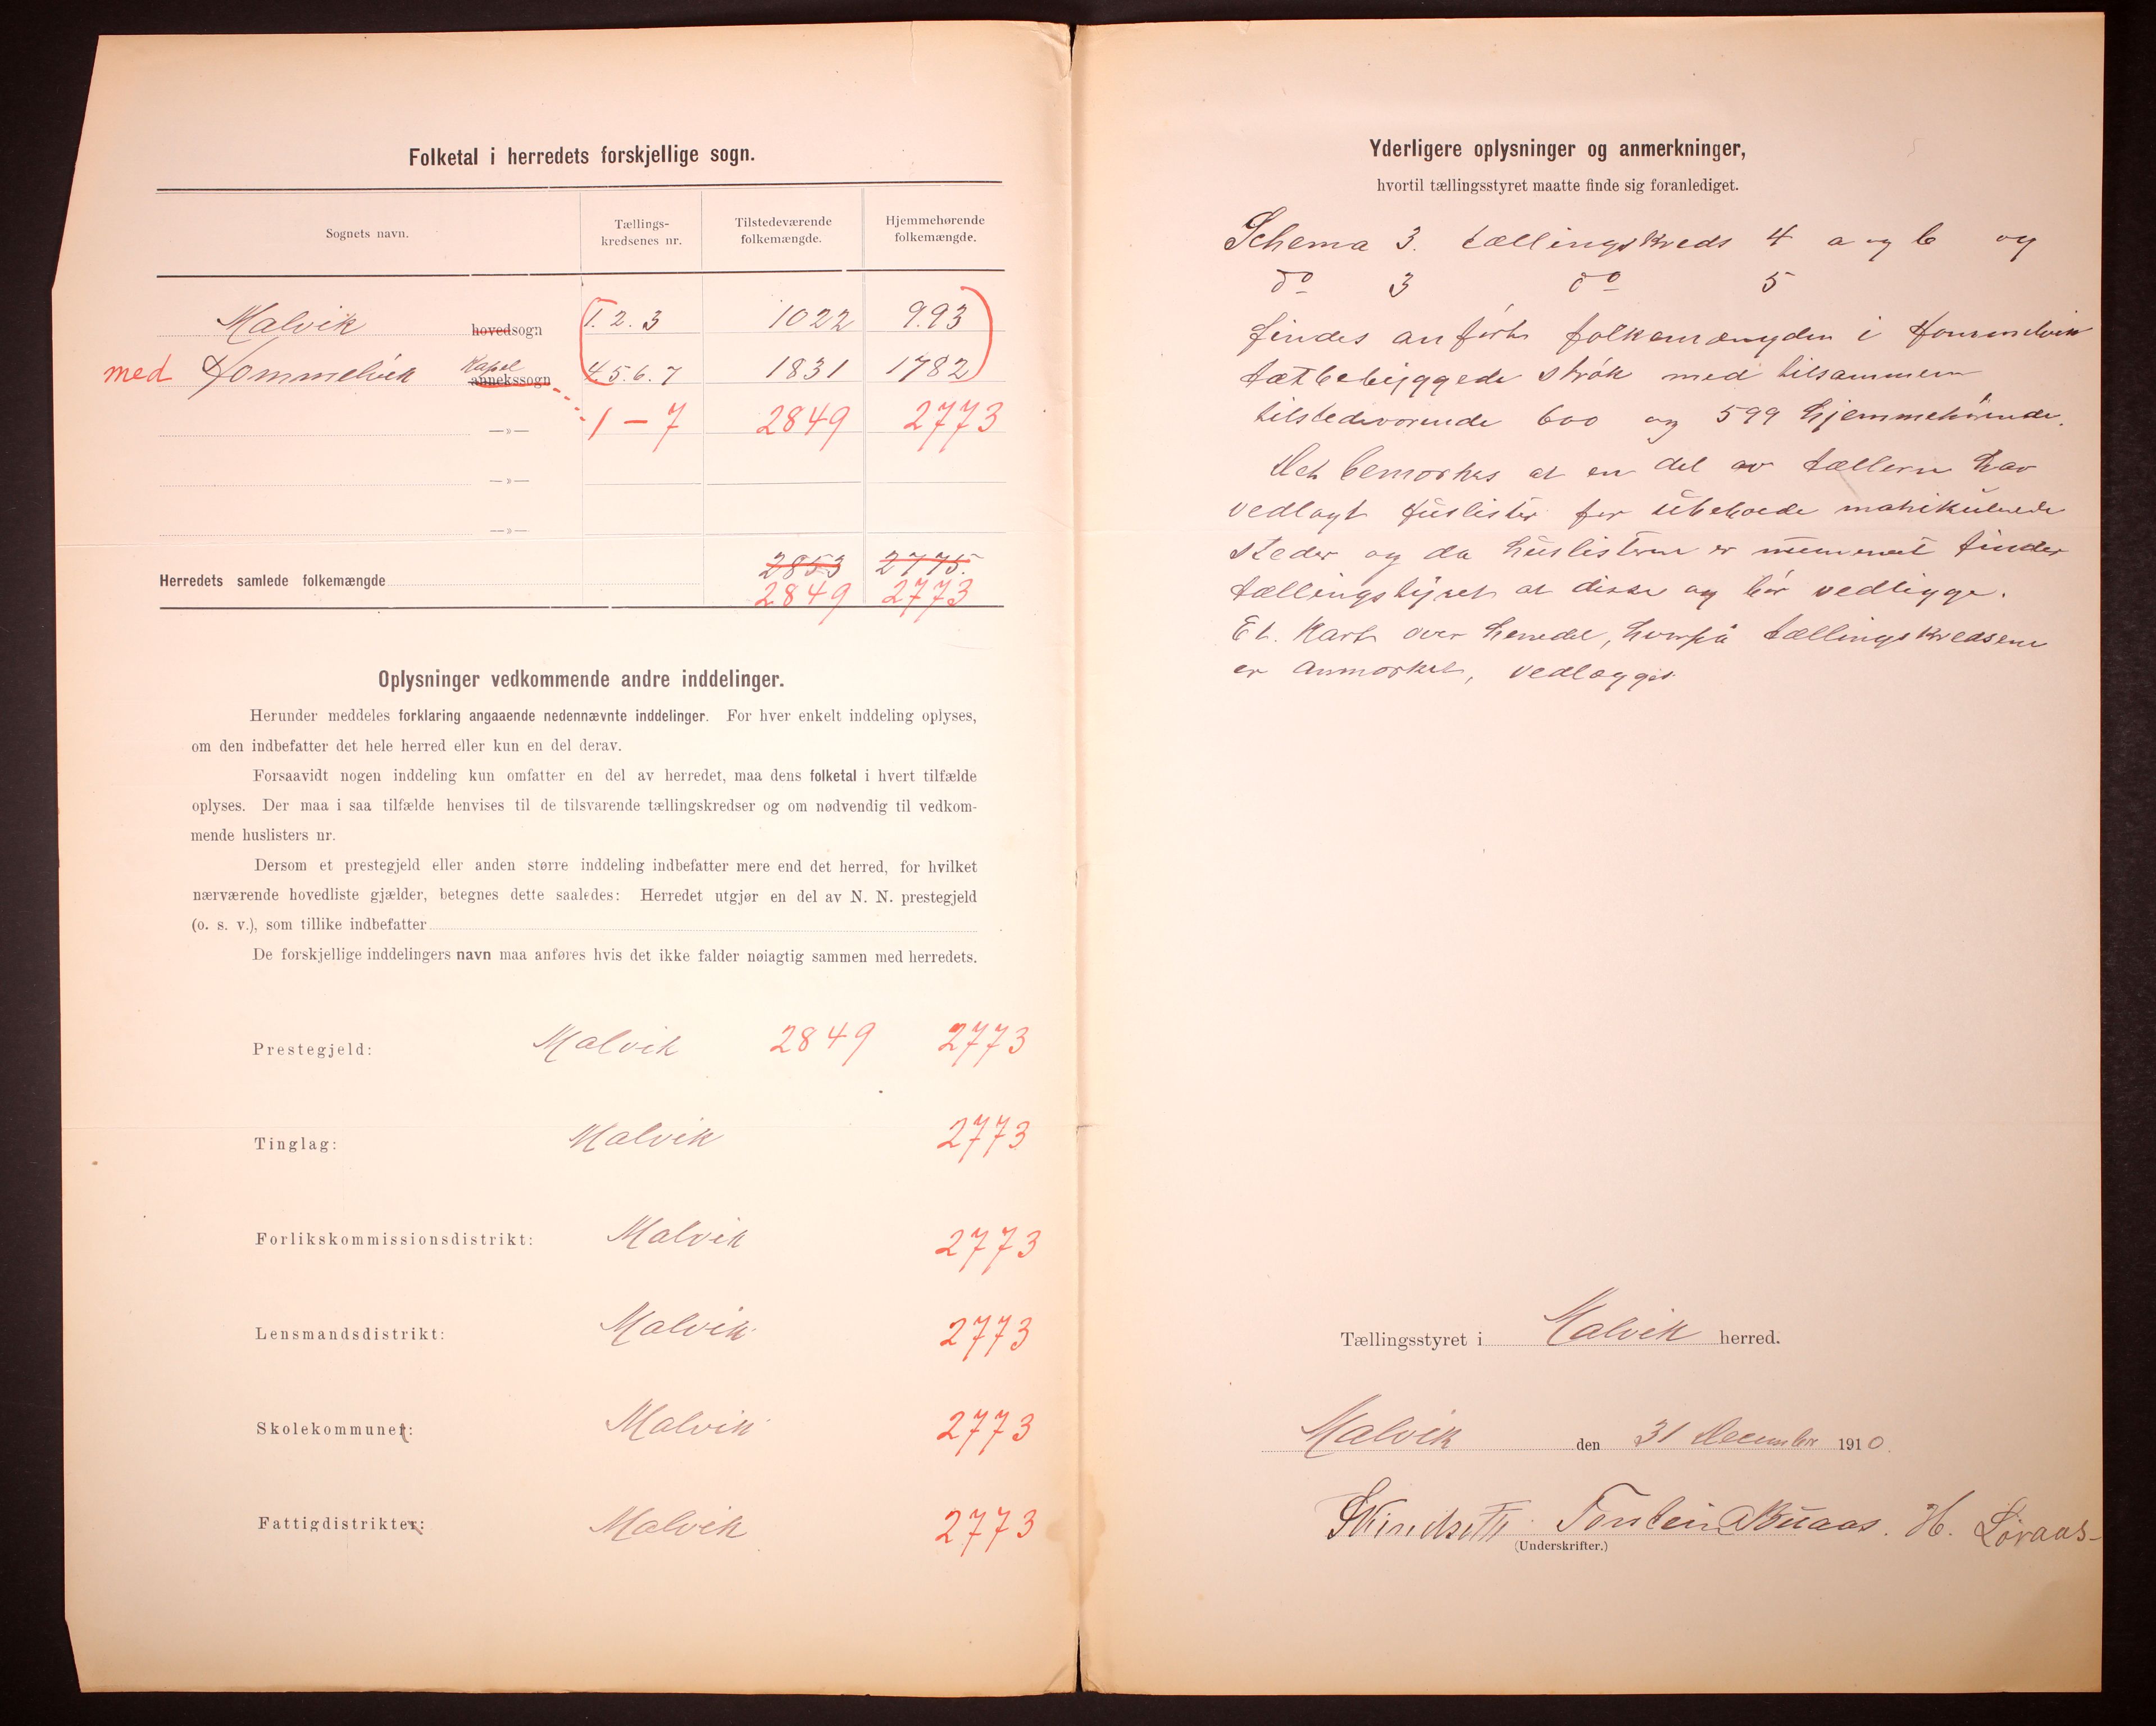 Folketal i herredets forskjellige sogn.
Sognets navn.
Tællings-
kredsenes nr.
Tilstedeværende
folkemængde.
Hjemmehørende
folkemængde.
Malvik hovedsogn 1. 2. 3 1022 993
med Hommelvik Kapel annekssogn 4. 5. 6. 7 1831 1782
—»— 1 - 7 2849 2773
—»—
—»—
2853 2775.
Herredets samlede folkemængde
2849 2773
Oplysninger vedkommende andre inddelinger.
Herunder meddeles forklaring angaaende nedennævnte inddelinger. For hver enkelt inddeling oplyses,
om den indbefatter det hele herred eller kun en del derav.
Forsaavidt nogen inddeling kun omfatter en del av herredet, maa dens folketal i hvert tilfælde
oplyses. Der maa i saa tilfælde henvises til de tilsvarende tællingskredser og om nødvendig til vedkom-
mende huslisters nr.
Dersom et prestegjeld eller anden større inddeling indbefatter mere end det herred, for hvilket
nærværende hovedliste gjælder, betegnes dette saaledes: Herredet utgjør en del av N. N. prestegjeld
(o. s. v.), som tillike indbefatter
De forskjellige inddelingers navn maa anføres hvis det ikke falder nøiagtig sammen med herredets.
Prestegjeld: Malvik 2849 2773
Tinglag: Malvik 2773
Forlikskommissionsdistrikt: Malvik 2773
Lensmandsdistrikt: Malvik 2773
Skolekommuner: Malvik 2773
Fattigdistrikter: Malvik 2773
Yderligere oplysninger og anmerkninger,
hvortil tællingsstyret maatte finde sig foranlediget.
Schema 3. tællingskreds 4 a og b og
do 3 do 5
findes anført folkemængden i Hommelvik
tætbebyggede strøk med tilsammen
tilstedeværende 600 og 599 hjemmehørende.
Det bemærkes at en del av tællerne har
vedlagt huslister for ubeboede matrikulerede
steder og da huslisterne er finder
tællingstyret at disse og bør vedligge.
Et. Kart over herredet, hvorpå tællingskredsene
er anmærket, vedlægges
Tællingsstyret i Malvik herred.
Malvik den 31 December 1910.
H. Løvaas
(Underskrifter.)